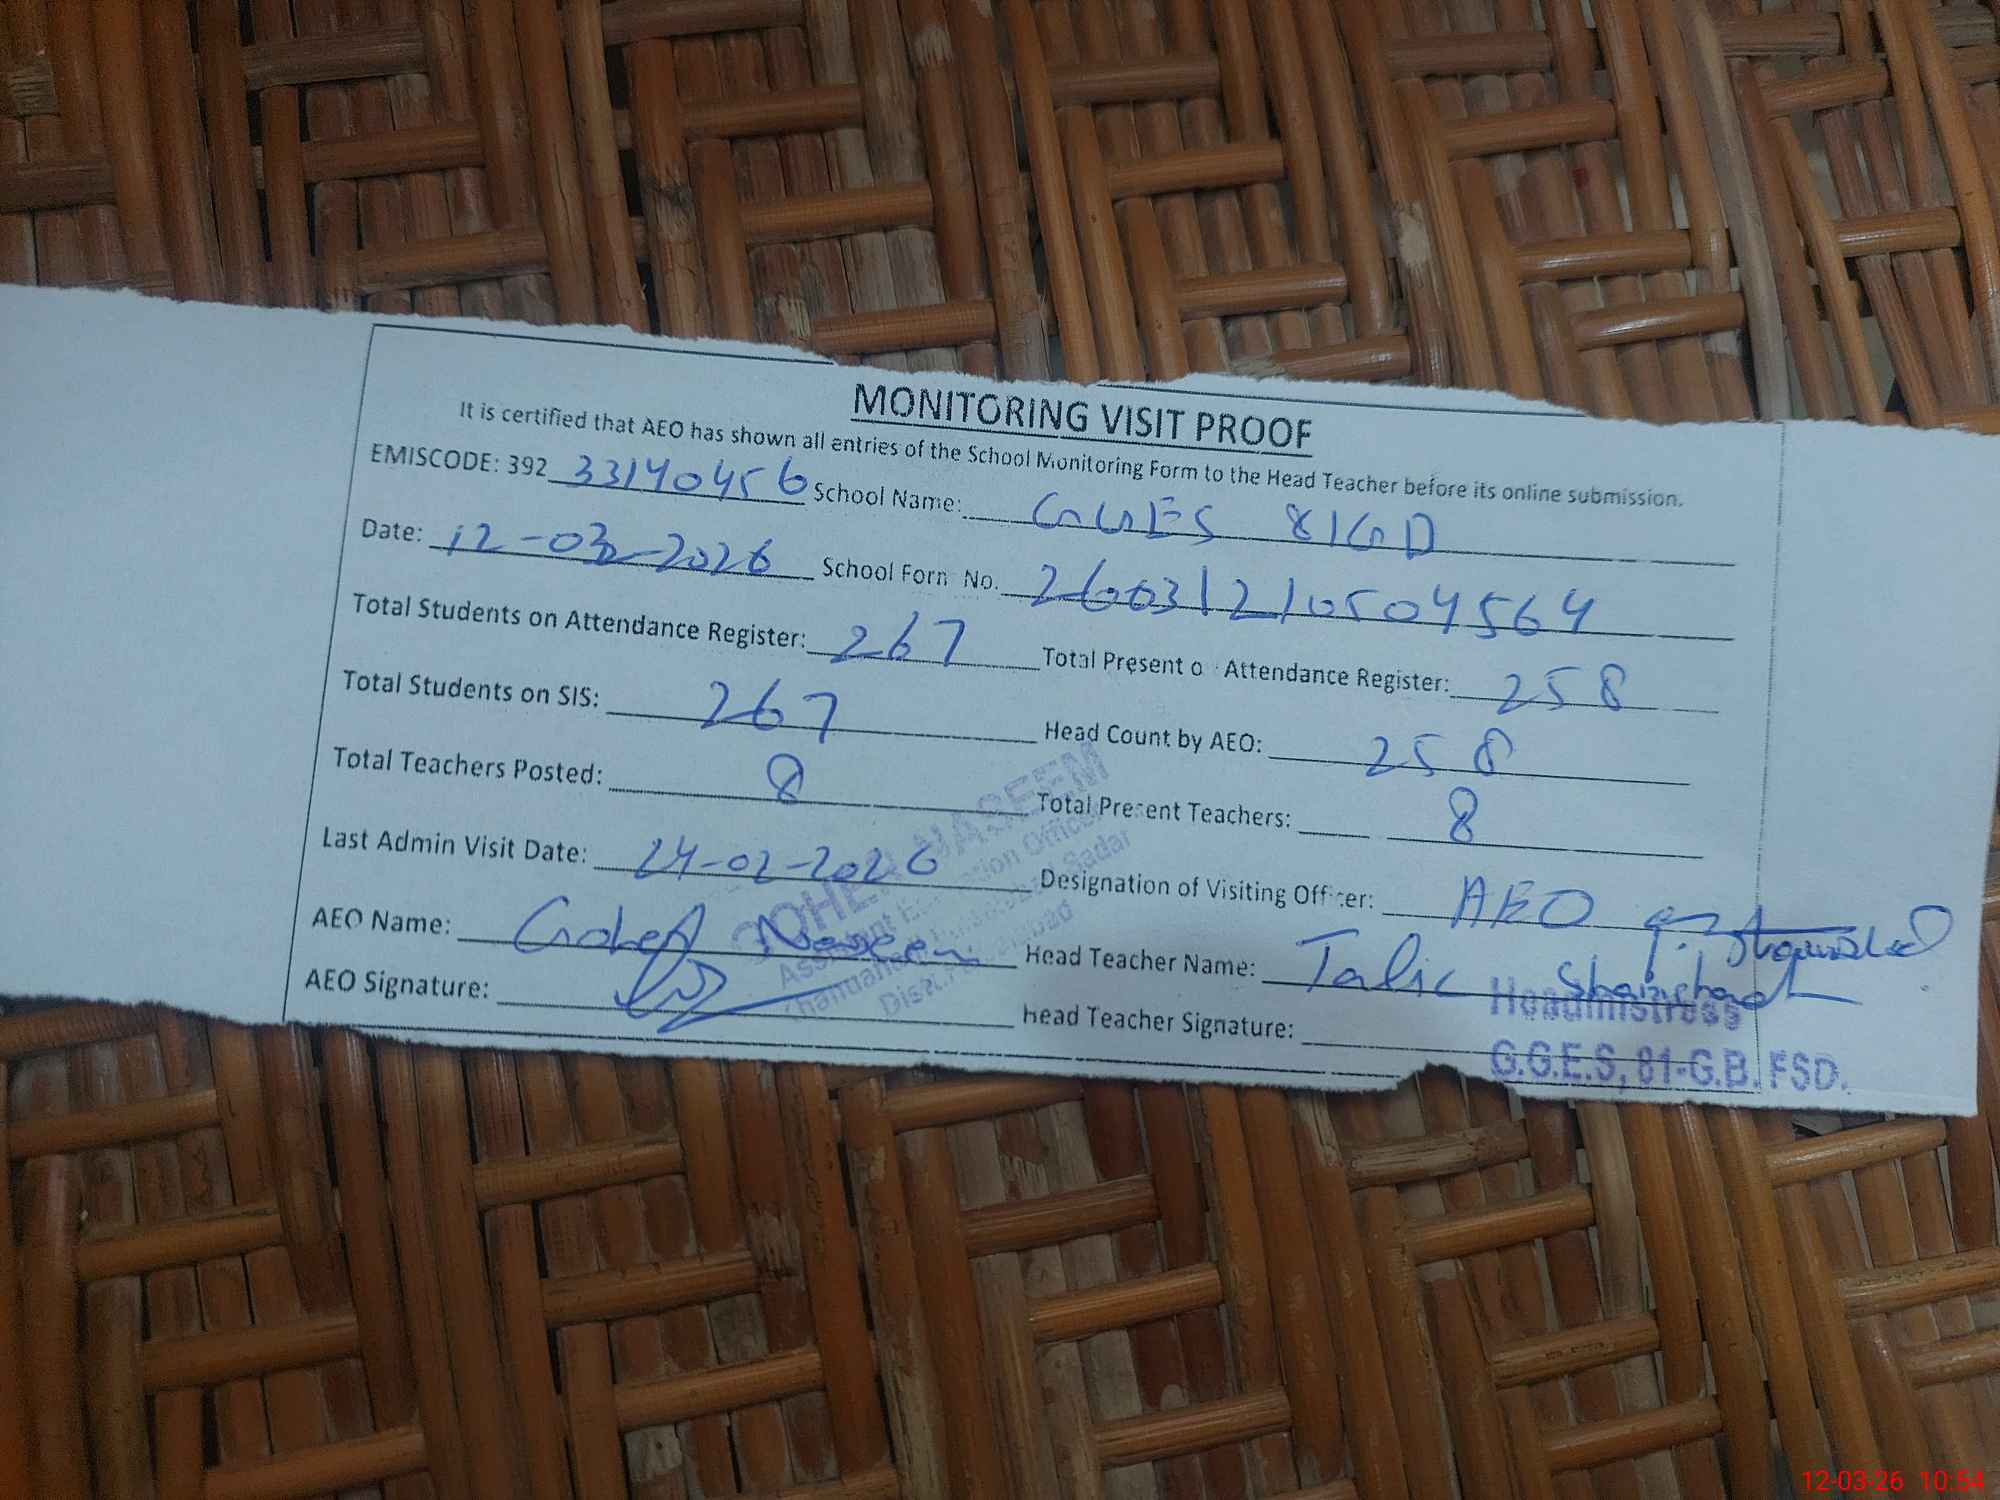 MONITORING VISIT PROOF
It is certified that AEO has shown all entries of the School Monitoring Form to the Head Teacher before its online submission.
EMISCODE: 392 33140456 School Name: GGES 81GB
Date: 12-03-2026 School Form No. 26031210504564
Total Students on Attendance Register: 267 Total Present o Attendance Register: 258
Total Students on SIS: 267 Head Count by AEO: 258
Total Teachers Posted: 8 Total Present Teachers: 8
Last Admin Visit Date: 24-02-2026 Designation of Visiting Officer: AEO
AEO Name: Goher Naseem Head Teacher Name:
AEO Signature: Head Teacher Signature:
GOHER NASEEM
Assistant Education Officer
Sadar
Headmistress
G.G.E.S, 81-G.B. FSD.
12-03-26 10:54